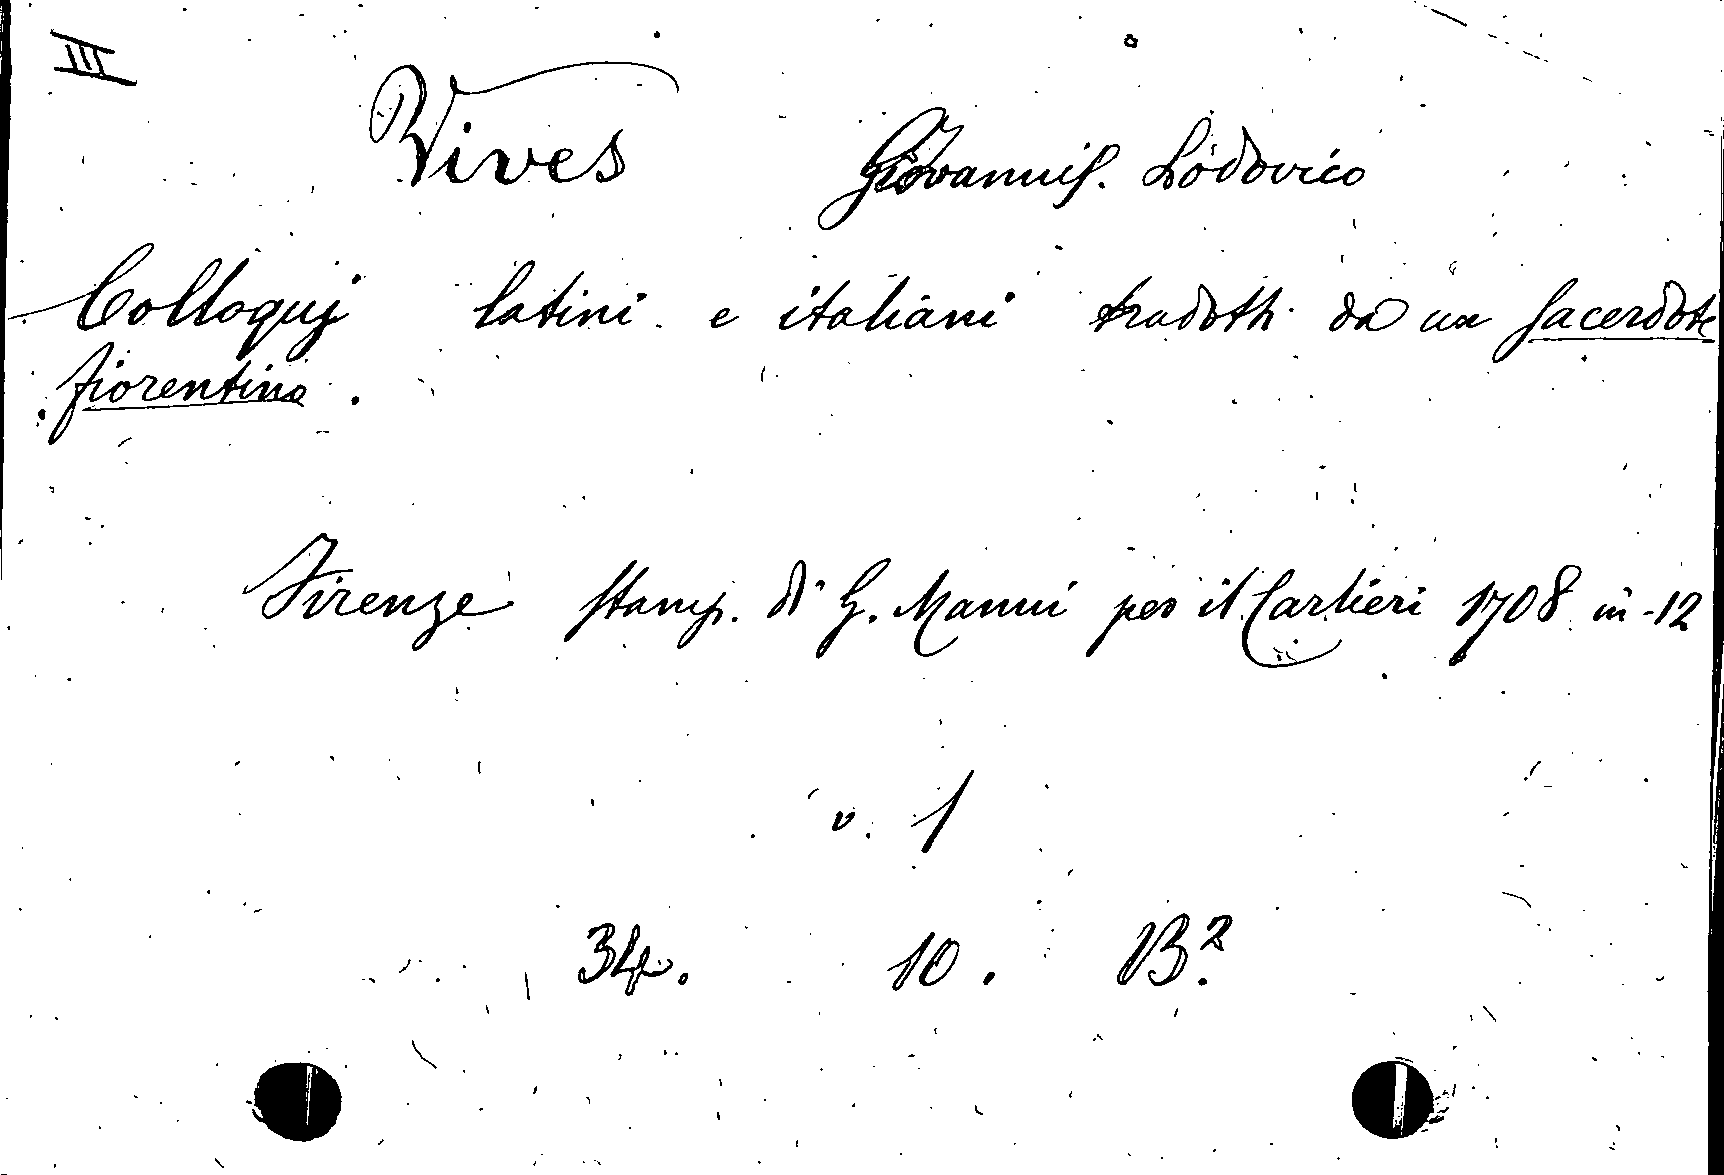 III
Vives Giovanni. Lodovico
Colloquj latini e italiani tradotti da un sacerdote
fiorentino.
Firenze stamp. di G. Manni per il Carlieri 1708 in-12
v. 1
34. 10. B².